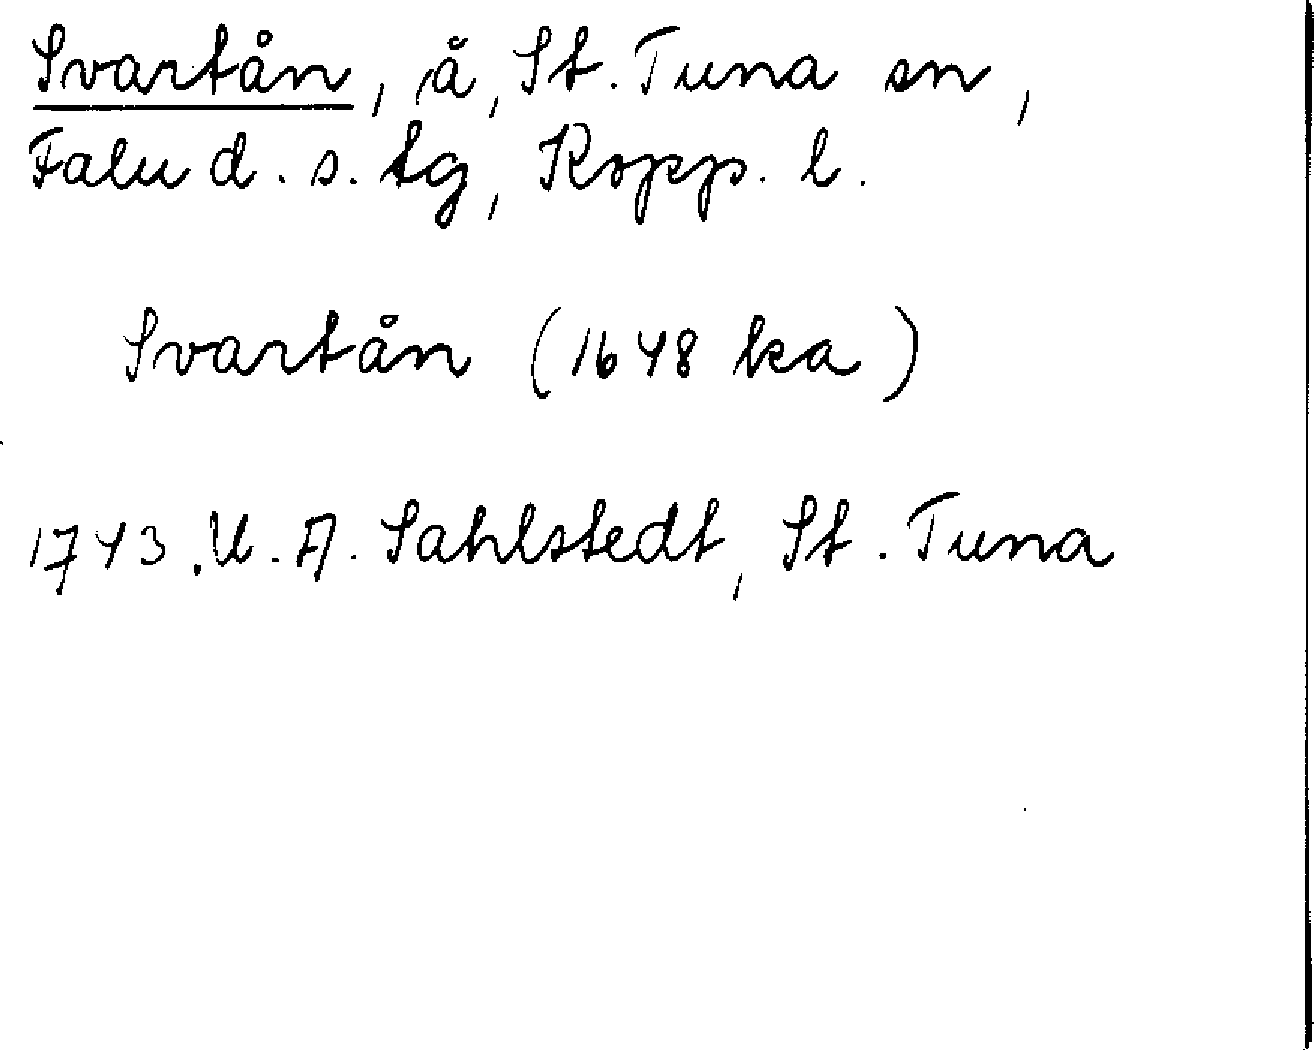 Svartån, å, St. Tuna sn,
Falu d. s. tg, Kopp. l.
Svartån (1648 ka)
1743. U. A. Sahlstedt, St. Tuna